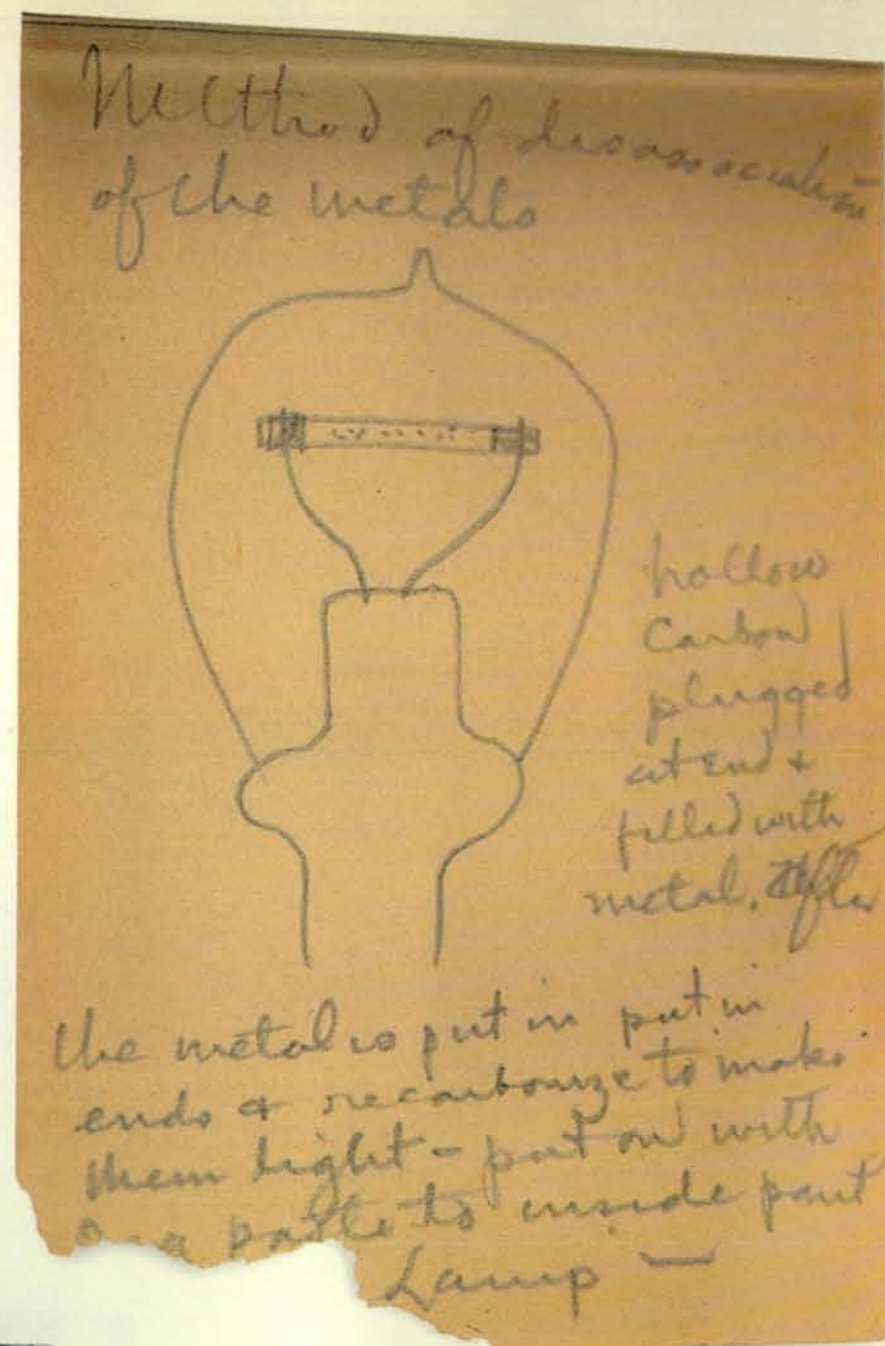 Method of disassociation
of the metals
hollow
Carbon
plugged
at end &
filled with
metal. After
the metal is put in put in
ends & recarbonize to make
them tight - put on with
a paste to inside part
Lamp —